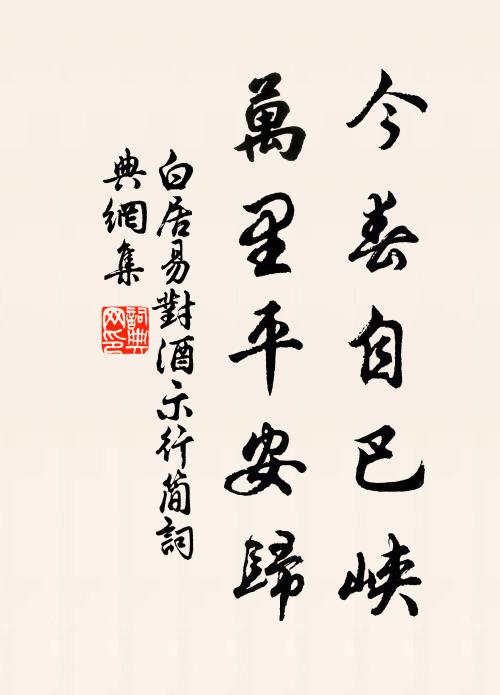 今春自巴峽
萬里平安歸
白居易對酒示行簡詞
典網集
詞典
网印